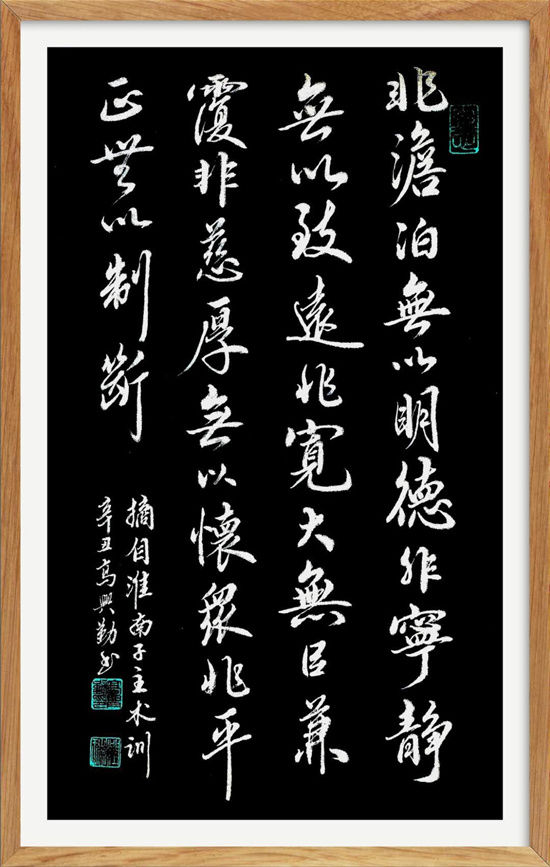 非澹泊無以明德非寧靜
無以致遠非寬大無㠯兼
覆非慈厚無以懷衆非平
正無以制斷
摘自淮南子主术训
辛丑高興勤书